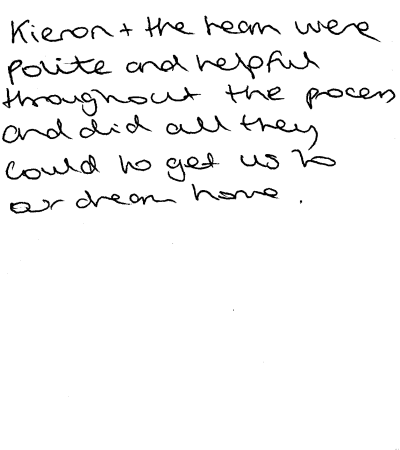 Kieron + the team were
polite and helpful
throughout the process
and did all they
could to get us to
our dream home.